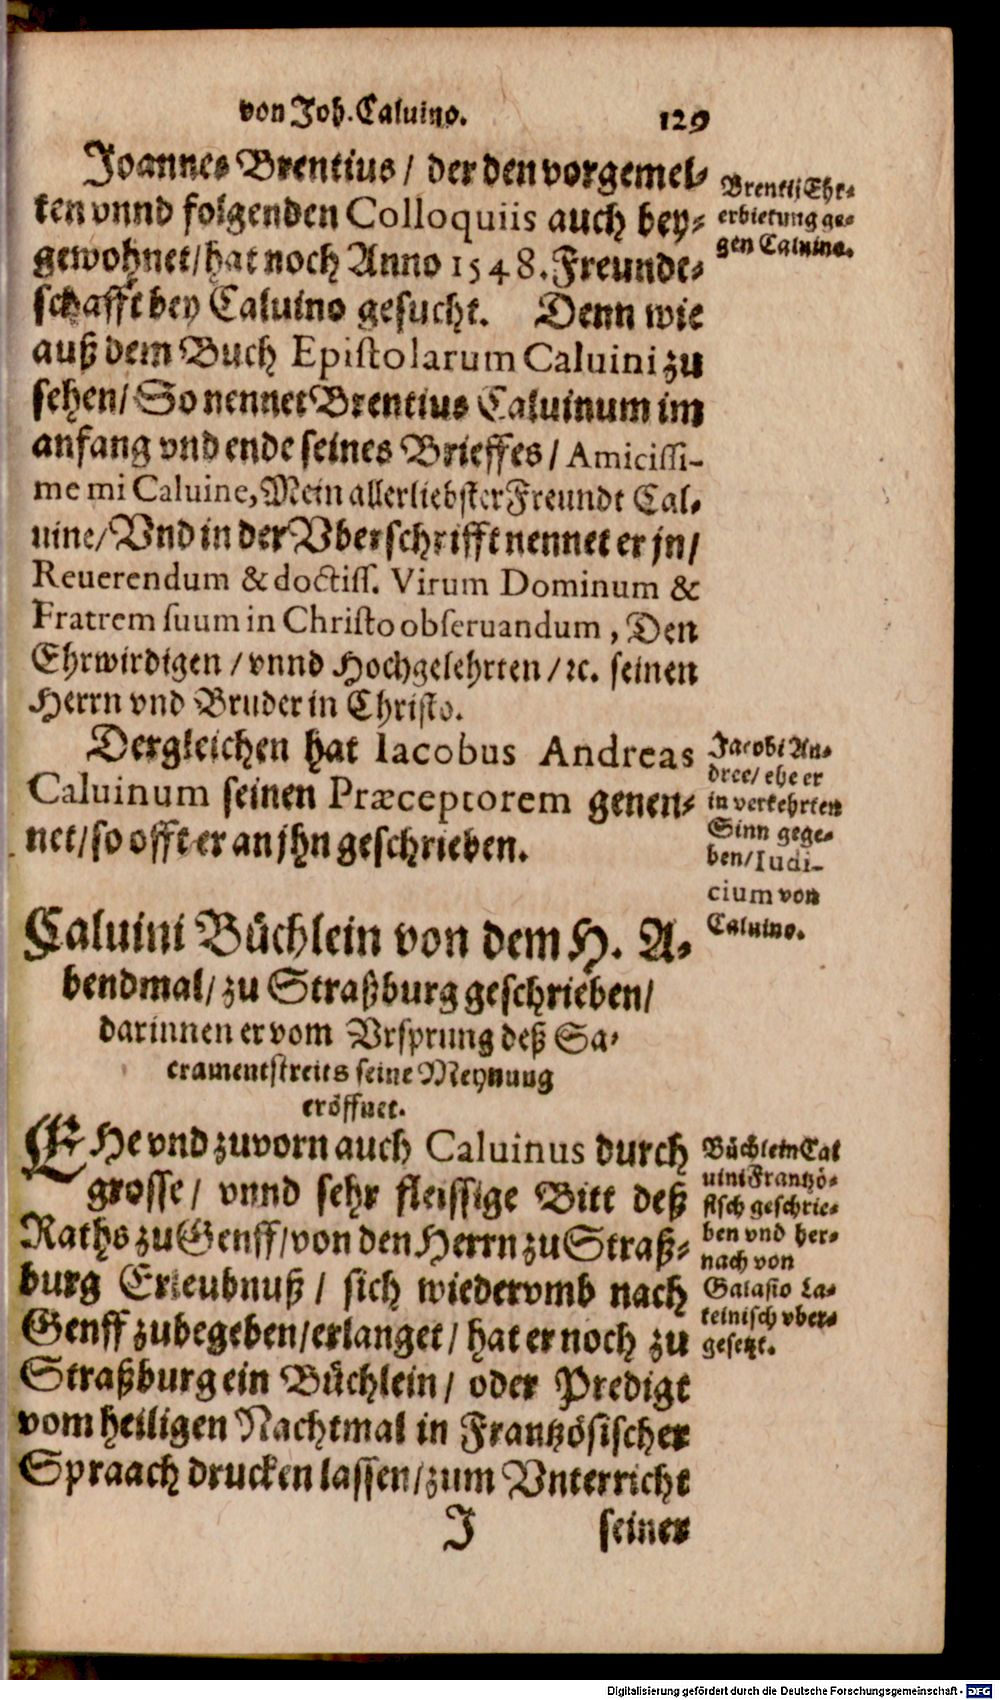 von Joh. Caluino. 129
Joannes Brentius / der den vorgemel-
ten vnnd folgenden Colloquiis auch bey-
gewohnet / hat noch Anno 1548. Freundt-
schafft bey Caluino gesucht. Denn wie
auß dem Buch Epistolarum Caluini zu
sehen / So nennet Brentius Caluinum im
anfang vnd ende seines Brieffes / Amicissi-
me mi Caluine, Mein allerliebster Freundt Cal-
uine / Vnd in der Vberschrifft nennet er jn /
Reuerendum & doctiss. Virum Dominum &
Fratrem suum in Christo obseruandum, Den
Ehrwirdigen / vnnd Hochgelehrten / ꝛc. seinen
Herrn vnd Bruder in Christo.
Brentij Ehr-
erbietung ge-
gen Caluino.
Dergleichen hat Iacobus Andreas
Caluinum seinen Præceptorem genen-
net / so offt er an jhn geschrieben.
Jacobi An-
dree / ehe er
in verkehrten
Sinn gege-
ben / Iudi-
cium von
Caluino.
Caluini Büchlein von dem H. A-
bendmal / zu Straßburg geschrieben /
darinnen er vom Vrsprung deß Sa-
cramentstreits seine Meynung
eröffnet.
EHe vnd zuvorn auch Caluinus durch
grosse / vnnd sehr fleissige Bitt deß
Raths zu Genff / von den Herrn zu Straß-
burg Erleubnuß / sich wiedervmb nach
Genff zubegeben / erlanget / hat er noch zu
Straßburg ein Büchlein / oder Predigt
vom heiligen Nachtmal in Frantzösischer
Spraach drucken lassen / zum Vnterricht
Büchlein Cal
uini Frantzö-
sisch geschrie-
ben vnd her-
nach von
Galasio La-
teinisch vber-
gesetzt.
J seiner
Digitalisierung gefördert durch die Deutsche Forschungsgemeinschaft - DFG